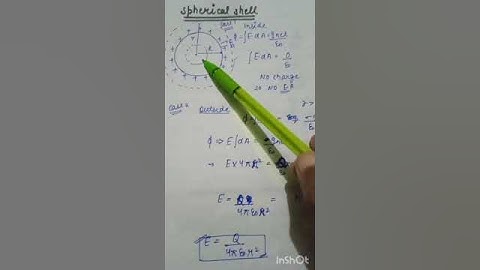 spherical shell
Case 1 Inside
ϕ = ∫ E dA = qncl / ε0
∫ E dA = 0 / ε0
No charge
so NO E.A
Case 2 Outside
ϕ ⇒ E ∫ dA =
→ E × 4πR² = Q
E = Q / 4πε0R² =
E = Q / 4πε0R²
InShOt